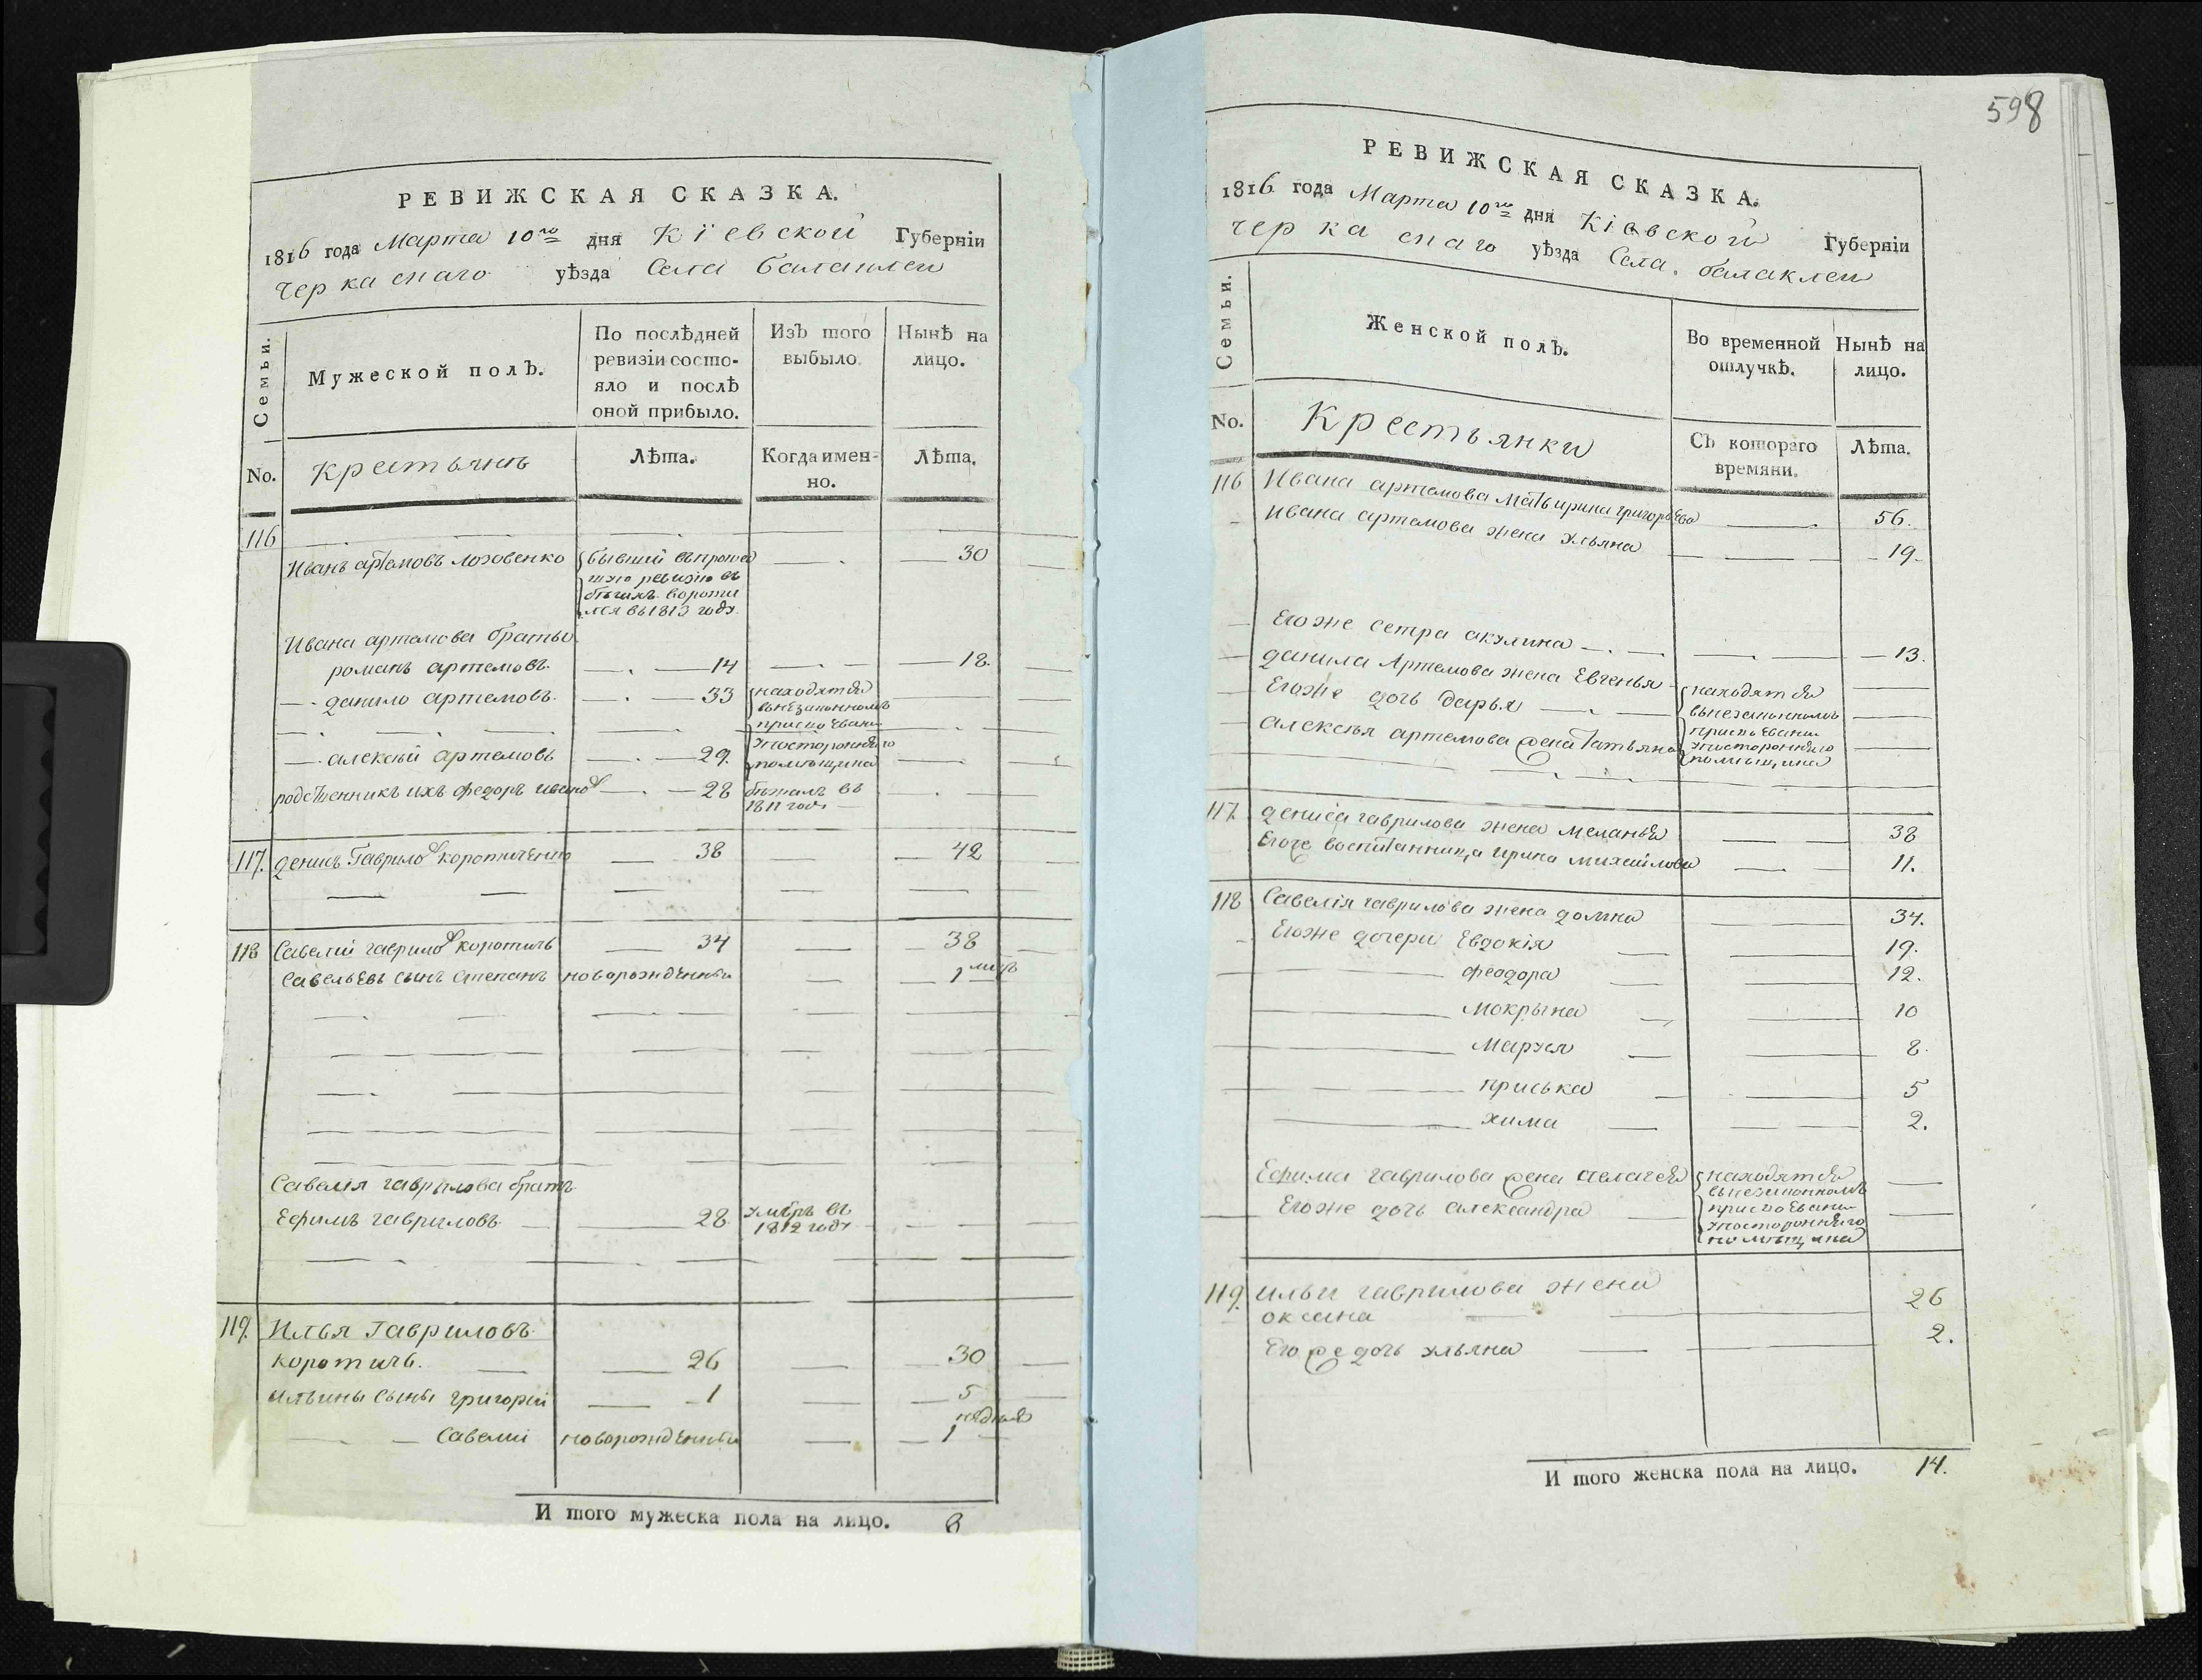 РЕВИЖСКАЯ СКАЗКА.
1816 года Марта 10го дня Кіевской Губерніи
черкаскаго уѣзда Села балаклеи
Семьи. Мужеской полъ. По послѣдней ревизіи состояло и послѣ оной прибыло. Изъ того выбыло. Нынѣ на лицо.
No. крестьянъ Лѣта. Когда именно. Лѣта.
116
Иванъ артемовъ лозовенко бывшій въ прошед 30
шую ревизію въ
бѣгахъ вороти
лся въ 1813 году.
Ивана артемова братья
романъ артемовъ 14 18.
данило артемовъ 33 находятся
въ незаконномъ
присвоеніи
алексѣй артемовъ 29. у посторонняго
помѣщика
родственникъ ихъ федоръ ивановъ 28 бѣжалъ въ
1811 году
117. денисъ Гавриловъ коротиченко 38 42
118 Савелій гавриловъ коротичъ 34 38
Савельевъ сынъ степанъ новорожденный 1 мцъ
Савелія гаврилова братъ
Ефимъ гавриловъ 28 умеръ въ
1812 году
119. Илья Гавриловъ
коротичъ. 26 30
Ильины сыны григорій 1 5
недѣля
Савелій новорожденный 1
И того мужеска пола на лицо. 8
598
РЕВИЖСКАЯ СКАЗКА.
1816 года Марта 10го дня Кіевской Губерніи
черкаскаго уѣзда Села балаклеи
Семьи. Женской полъ. Во временной отлучкѣ. Нынѣ на лицо.
No. Крестьянки Съ котораго времяни. Лѣта.
116 Ивана артемова мать ирина григорьева 56.
Ивана артемова жена ульяна 19
Его же сетра акулина 13.
данила Артемова жена Евгенья находятся
Его же дочь дарья въ незаконномъ
присвоеніи
алексѣя артемова жена татьяна у посторонняго
помѣщика
117. дениса гаврилова жена меланья 38
Его же воспитанница ирина михайлова 11.
118 Савелія гаврилова жена домна 34.
Его же дочери Евдокія 19.
феодора 12.
мокрына 10
маруся 8.
приська 5
хима 2.
Ефима гаврилова жена пелагея находятся
въ незаконномъ
Его же дочь александра присвоеніи
у посторонняго
помѣщика
119. ильи гаврилова жена
оксана 26
Его же дочь ульяна 2.
И того женска пола на лицо. 14.